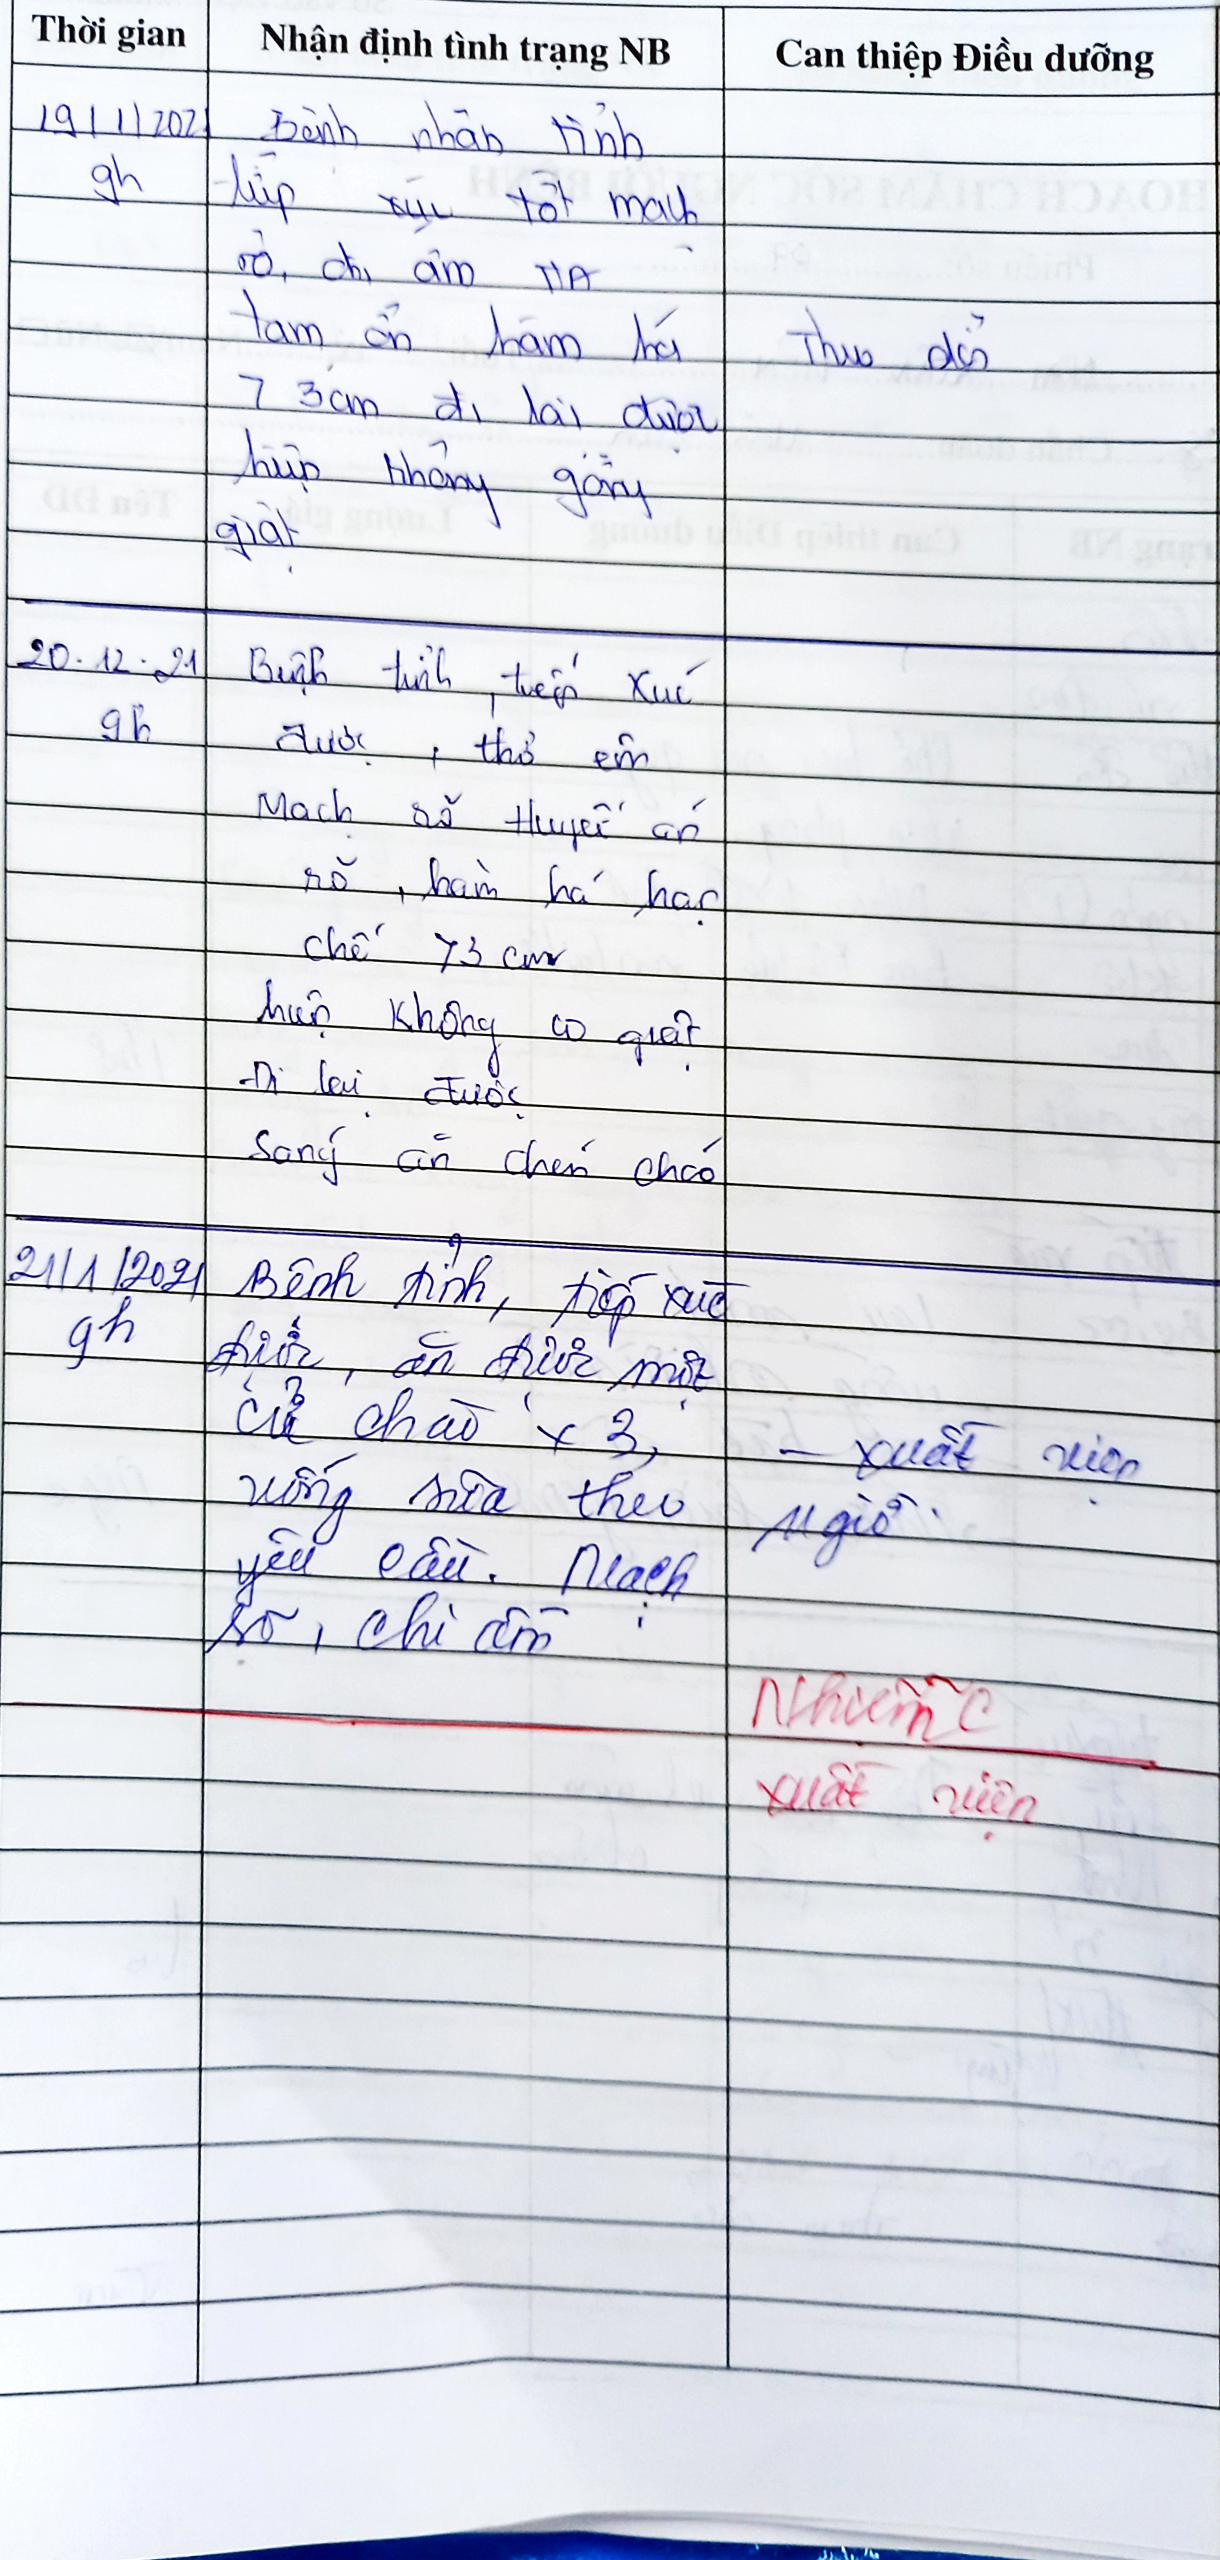 Thời gian Nhận định tình trạng NB Can thiệp Điều dưỡng
19/1/2021 Bệnh nhân tỉnh
9h tiếp xúc tốt mạch
rõ, chi ấm HA
tạm ổn hàm há Theo dõi
7 3cm đi lại được
hiện không gồng
giật
20.12.21 Bệnh tỉnh, tiếp xúc
9h được, thở êm
Mạch rõ Huyết áp
rõ, hàm há hạn
chế 73 cm
hiện không co giật
Đi lại được
Sáng ăn chén cháo
21/1/2021 Bệnh tỉnh, tiếp xúc
9h được, ăn được một
cử cháo x 3, - xuất viện
uống sữa theo 11 giờ.
yêu cầu. Mạch
rõ, chi ấm
Nhiễm C
xuất viện